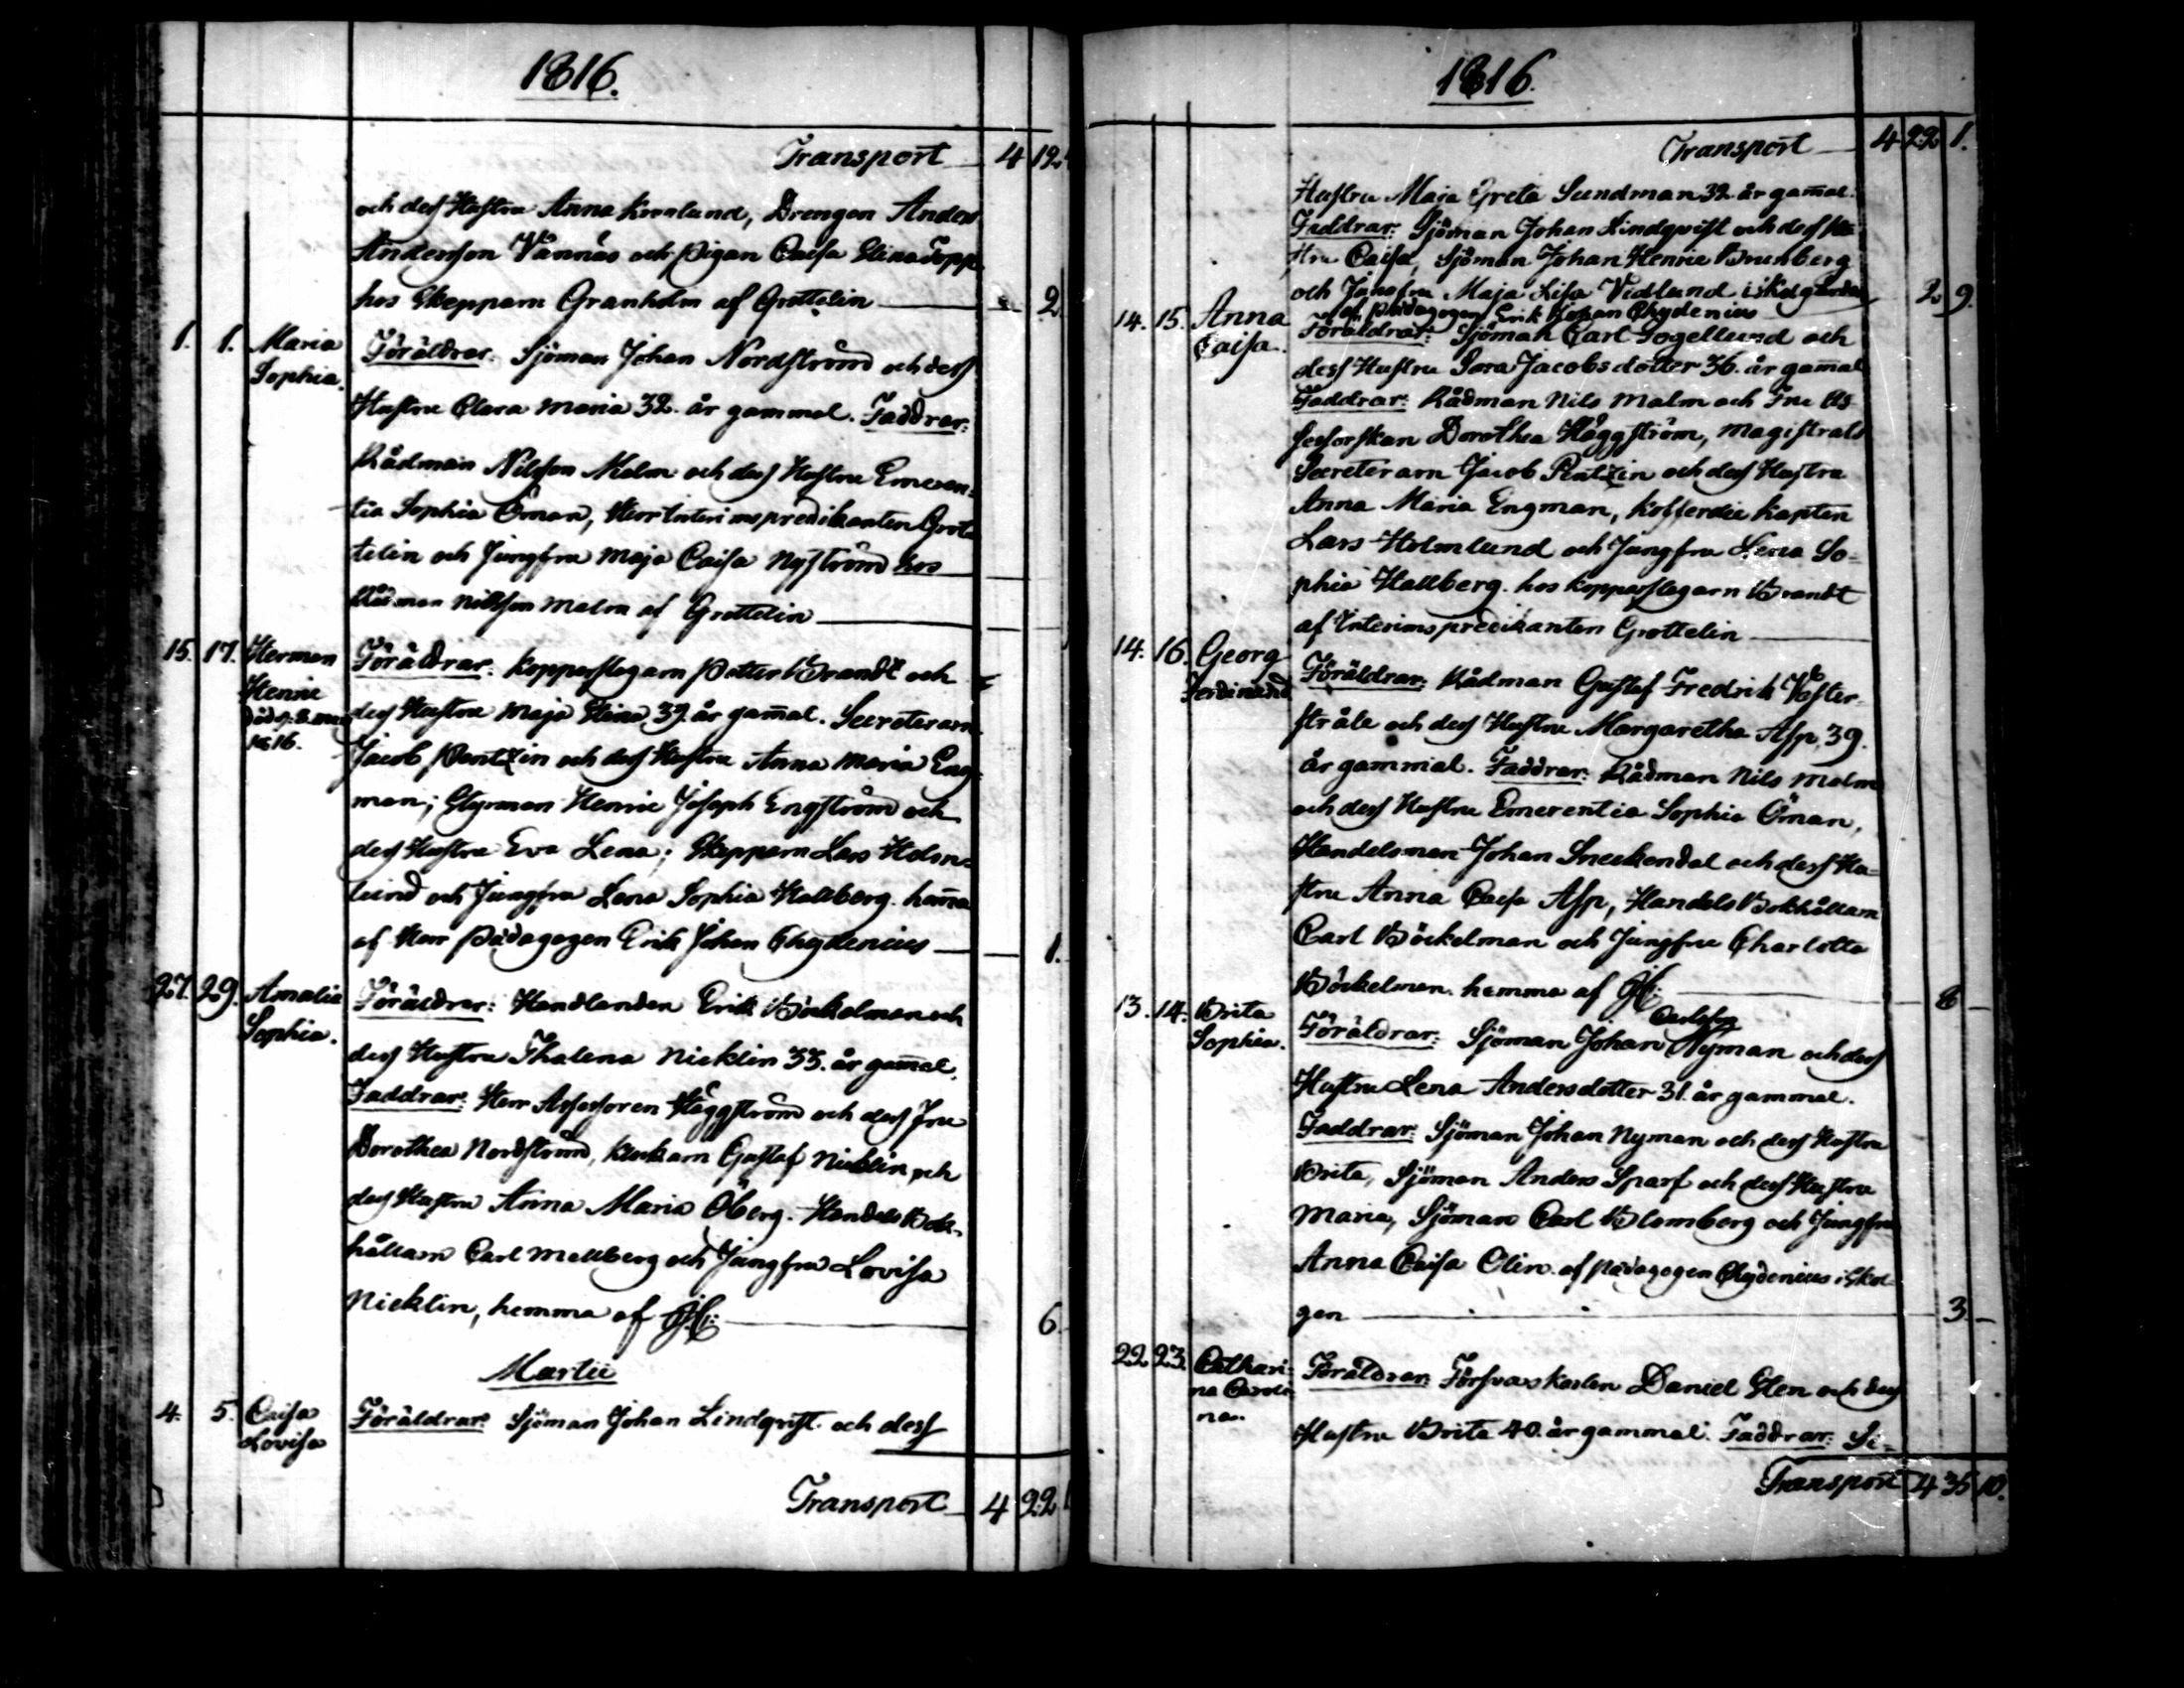 1816.
Transport 4 12
och dess Hustru Anna Kronlund, Drengen Anders
Andersson Vännäs och Pigan Caisa Elina Topp
hos Skepparn Granholm af Grottelin 2
1. 1. Maria Sophia. Föräldrar: Sjöman Johan Nordström och dess
Hustru Clara Maria 32. år gammal. Faddrar:
Rådman Nilsson Malm och dess Hustru Emeren-
tia Sophia Öman, Herr Interimspredikanten Grot-
telin och Jungfru Maja Caisa Nyström hos
Rådman Nilsson Malm af Grottelin
15. 17. Herman Henric död d. 8. 1816. Föräldrar: Kopparslagarn Petter Brandt och
dess Hustru Maja Elina 39. år gamal. Secreterarn
Jacob Pentzin och dess Hustru Anna Maria Eng-
man; Styrman Henric Joseph Engström och
dess Hustru Eva Lena; Skepparn Lars Holm-
lund och Jungfru Lena Sophia Hallberg. hema
af Herr Pædagogen Erik Johan Chydenius 1.
27. 29. Amalia Sophia. Föräldrar: Handlanden Erik Böckelman och
dess Hustru Thalena Nicklin 33. år gamal.
Faddrar: Herr Assessoren Häggström och dess Fru
Dorothea Nordström, Klockarn Gustaf Nicklin och
dess Hustru Anna Maria Öberg. Handels Bok-
hållarn Carl Mellberg och Jungfru Lovisa
Nicklin, hemma af 6.
Martii
4. 5. Caisa Lovisa Föräldrar: Sjöman Johan Lindqvist och dess
Transport 4 22
1816.
Transport 4 22 1.
Hustru Maja Greta Sundman 32 år gamal.
Faddrar: Sjöman Johan Lindqvist och dess Hu-
stru Caisa, Sjöman Johan Henric Brunberg
och Jungfru Maja Lisa Vidlund i 2 9.
af Pædagogen Erik Johan Chydenius
14. 15. Anna Caisa. Föräldrar: Sjöman Carl Fogellund och
dess Hustru Sara Jacobsdotter 36. år gamal
Faddrar: Rådman Nils Malm och Fru As-
sessorskan Dorothea Häggström, Magistrats
Secreterarn Jacob Pentzin och dess Hustru
Anna Maria Engman, Kofferdie Kapten
Lars Holmlund och Jungfru Lena So-
phia Hallberg. hos Kopparslagarn Brandt
af Interimspredikanten Grottelin
14. 16. Georg Ferdinand Föräldrar: Rådman Gustaf Fredrik Väster-
stråle och dess Hustru Margaretha Asp 39.
år gammal. Faddrar: Rådman Nils Malm
och dess Hustru Emerentia Sophia Öman,
Handelsman Johan Sneckendal och dess Hu-
stru Anna Caisa Asp, Handels Bokhållarn
Carl Böckelman och Jungfru Charlotta
Böckelman. hemma af 8
13. 14. Brita Sophia. Föräldrar: Sjöman Johan Carlsson Nyman och dess
Hustru Lena Andersdotter 31. år gammal.
Faddrar: Sjöman Johan Nyman och dess Hustru
Brita, Sjöman Anders Sparf och dess Hustru
Maria, Sjöman Carl Blomberg och Jungfru
Anna Caisa Olin. af Pædagogen Chydenius i
gen 3.
22 23. Cathari-na Caroli-na. Föräldrar: Försvarskarlen Daniel Sten och dess
Hustru Brita 40. år gammal. Faddrar: Si-
Transport 4 35 10.